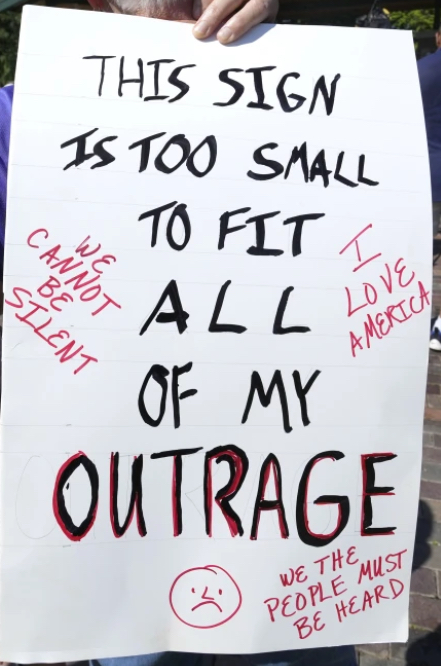 THIS SIGN
IS TOO SMALL
TO FIT
ALL
OF MY
OUTRAGE
WE
CANNOT
BE
SILENT
I
LOVE
AMERICA
WE THE
PEOPLE MUST
BE HEARD